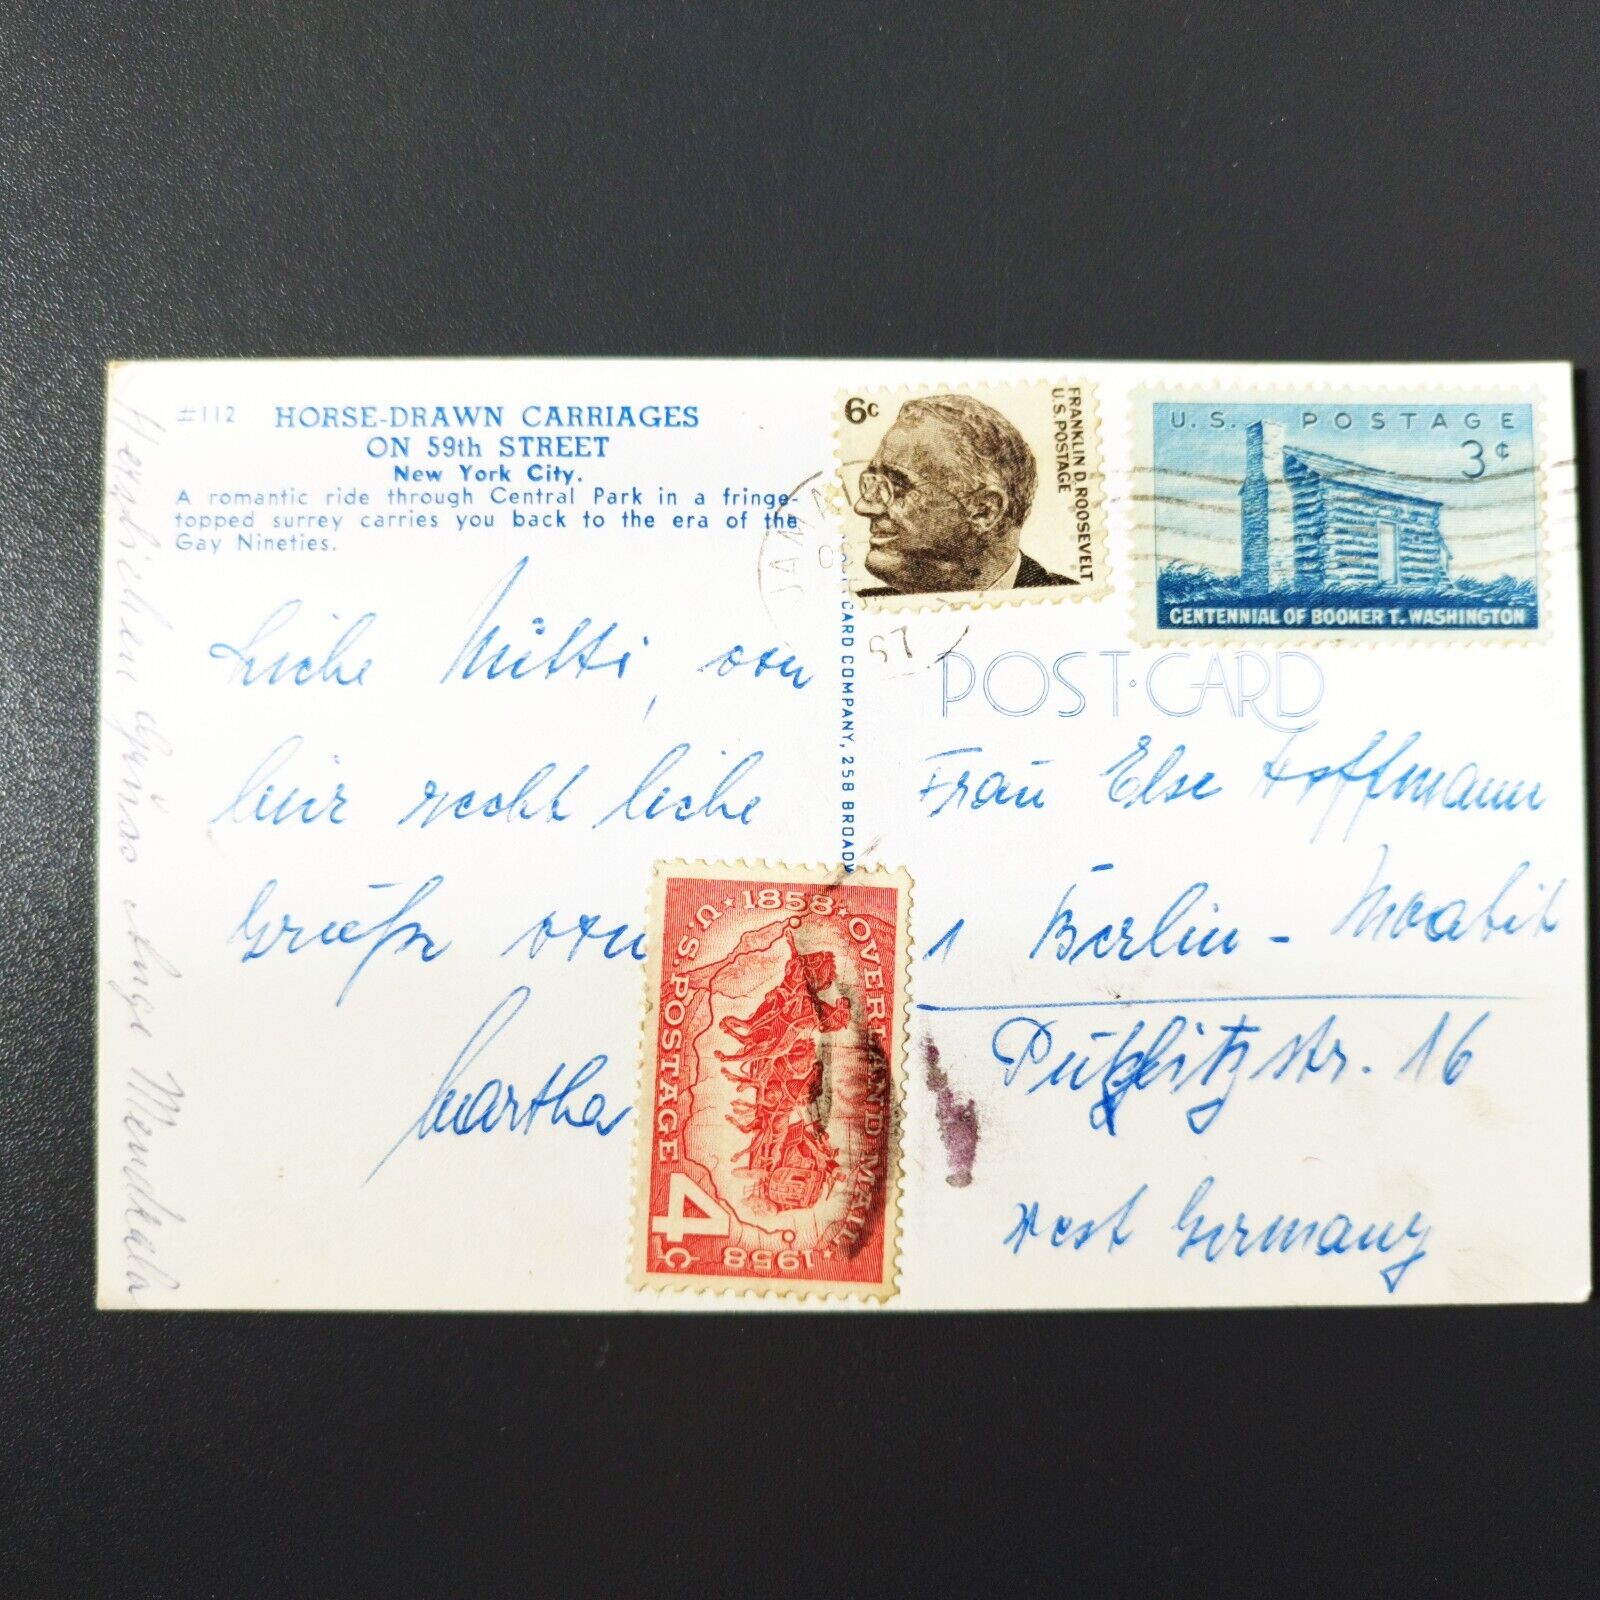 #112 HORSE-DRAWN CARRIAGES
ON 59th STREET
New York City.
A romantic ride through Central Park in a fringe-
topped surrey carries you back to the era of the
Gay Nineties.
Liebe Mutti, von
hier recht liebe
Grüße von
Martha
Herzlichen Gruss Inge
CARD COMPANY, 258 BROADW
6c
FRANKLIN D. ROOSEVELT
U.S. POSTAGE
U.S. POSTAGE
3¢
CENTENNIAL OF BOOKER T. WASHINGTON
JAMAI
67
POST CARD
Frau Else Hoffmann
1 Berlin - Moabit
Putlitzstr. 16
West Germany
U.S. POSTAGE
1858 OVERLAND MAIL 1958
4c